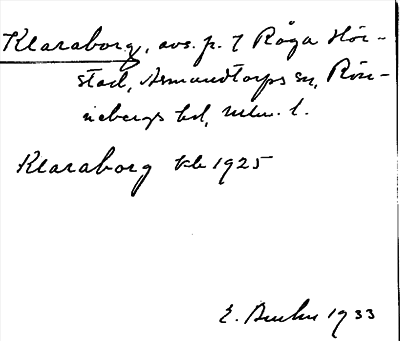 Klaraborg, avs. p. 7 Röga Hör-
stad, Asmundtorps sn, Rön-
nebergs hd, Mlm. l.
Klaraborg kb 1925
E. 1933